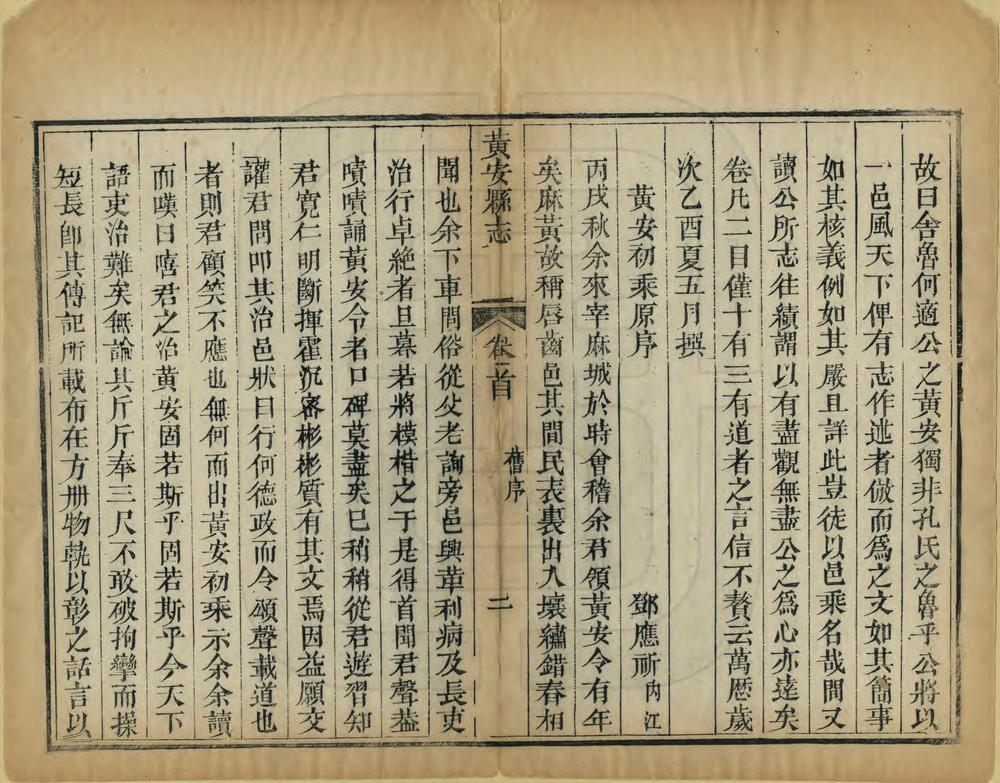 故曰舍魯何適公之黃安獨非孔氏之魯乎公將以
一邑風天下俾有志作述者倣而爲之文如其簡事
如其核義例如其嚴且詳此豈徒以邑乘名哉間又
讀公所志往績謂以有盡觀無盡公之爲心亦達矣
卷凡二目僅十有三有道者之言信不贅云萬歷歲
次乙酉夏五月撰
黃安初乘原序
鄧應祈內江
丙戌秋余來宰麻城於時會稽余君領黃安令有年
矣麻黃故稱唇齒邑其間民表裏出入壤繡錯春相
黃安縣志
卷首
舊序
二
聞也余下車問俗從父老詢旁邑興革利病及長吏
治行卓絶者旦暮若將模楷之于是得首聞君聲葢
嘖嘖誦黃安令者口碑莫盡矣已稍稍從君遊習知
君寬仁明斷揮霍沉審彬彬質有其文焉因益願交
讙君間叩其治邑狀曰行何德政而令頌聲載道也
者則君顧笑不應也無何而出黃安初乘示余余讀
而嘆曰嘻君之治黃安固若斯乎固若斯乎今天下
語吏治難矣無論其斤斤奉三尺不敢破拘攣而操
短長卽其傳記所載布在方册物軌以彰之話言以